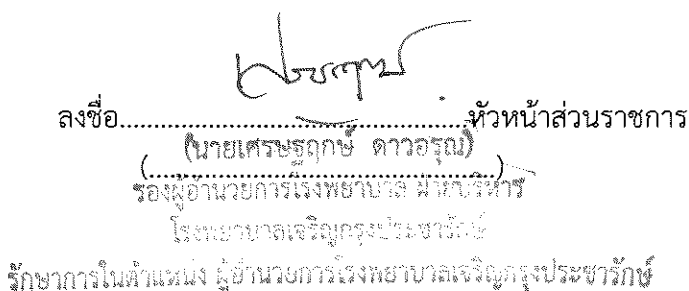 ลงชื่อ..........................................หัวหน้าส่วนราชการ
(นายเศรษฐฤกษ์ ดาวอรุณ)
(..........................................)
รองผู้อำนวยการโรงพยาบาล ฝ่ายบริหาร
โรงพยาบาลเจริญกรุงประชารักษ์
รักษาการในตำแหน่ง ผู้อำนวยการโรงพยาบาลเจริญกรุงประชารักษ์